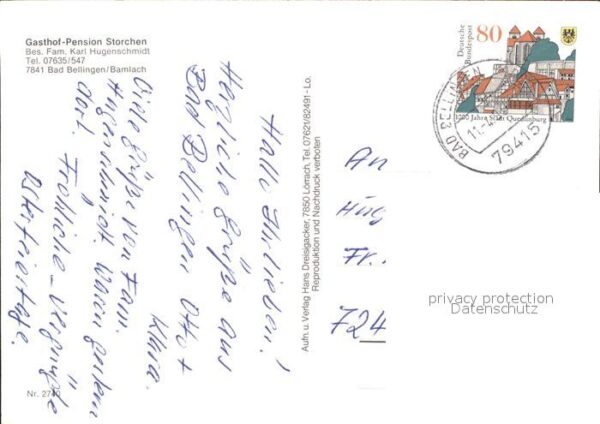 Gasthof-Pension Storchen
Bes. Fam. Karl Hugenschmidt
Tel. 07635/547
7841 Bad Bellingen/Bamlach
Hallo Ihr lieben!
Herzliche Grüße aus
Bad Bellingen Otto +
Klara.
Viele Grüße von Fam.
Hugenschmidt. Waren gestern
dort.
Fröhliche - vergnügte
Osterfeiertage.
Nr. 2740
Aufn. u. Verlag Hans Dreisigacker, 7850 Lörrach, Tel. 07621/82491 - Lo.
Reproduktion und Nachdruck verboten
Deutsche
Bundespost
80
1000 Jahre Stadt Quedlinburg
BAD BELLINGEN
11.-4
79415
An
Fr.
724
privacy protection
Datenschutz